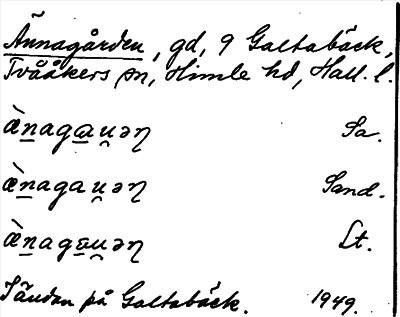 Ännagården, gd, 9 Galtabäck,
Tvååkers sn, Himle hd, Hall. l.
æ̀n̲aga̲u̯əɳ Sa.
æ̀n̲agau̯əɳ Sand.
æ̀n̲agɐu̯əɳ Lt.
Tändan på Galtabäck. 1949.